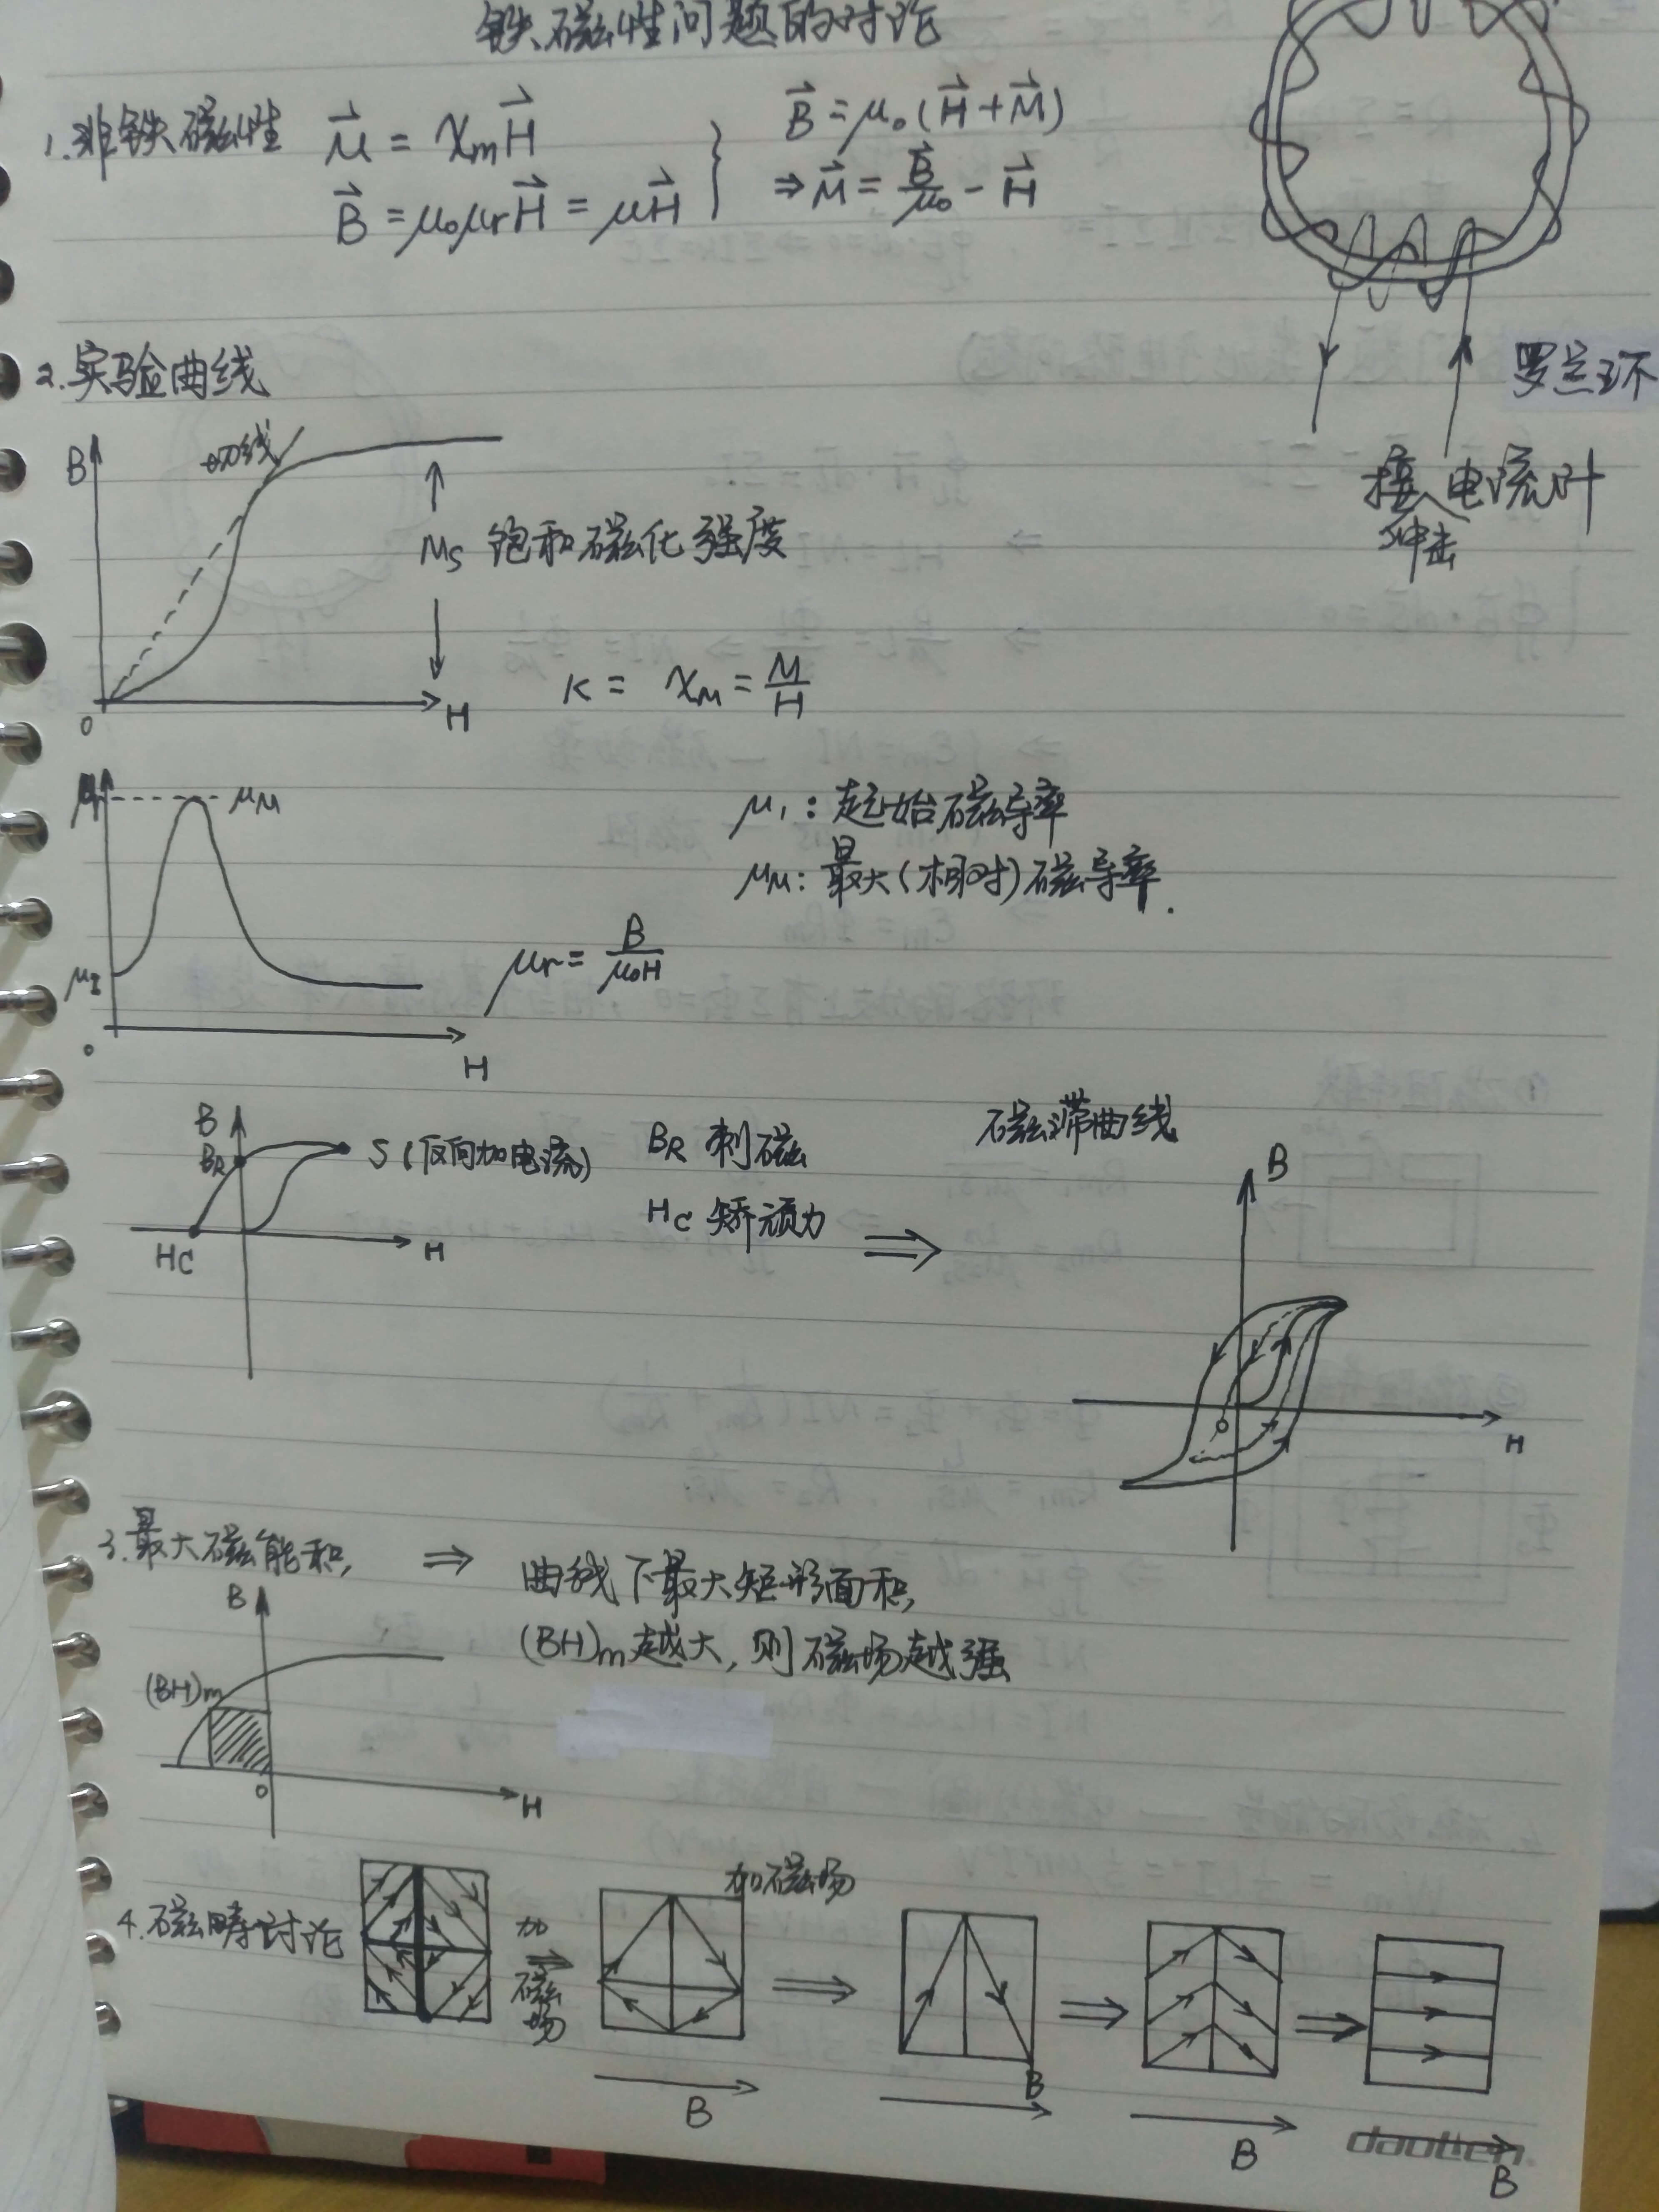 铁磁性问题的讨论
1.非铁磁性 μ⃗ = χₘH⃗
B⃗ = μ₀μᵣH⃗ = μH⃗
B⃗ = μ₀(H⃗+M⃗)
⇒ M⃗ = B⃗/μ₀ - H⃗
罗兰环
接冲击电流计
2.实验曲线
B
切线
Ms 饱和磁化强度
O
H
K = χ_M = M/H
μᵣ
μ_M
μ₁: 起始磁导率
μ_M: 最大(相对)磁导率.
μ_I
μᵣ = B/μ₀H
O
H
B
B_R
S (反向加电流)
HC
H
B_R 剩磁
H_C 矫顽力
⇒
磁滞曲线
B
H
3.最大磁能积, ⇒ 曲线下最大矩形面积,
(BH)m越大, 则磁场越强
B
(BH)m
O
H
4.磁畴讨论
加磁场 ⇒
加磁场
⇒
⇒
⇒
B
B
B
B
daolien.